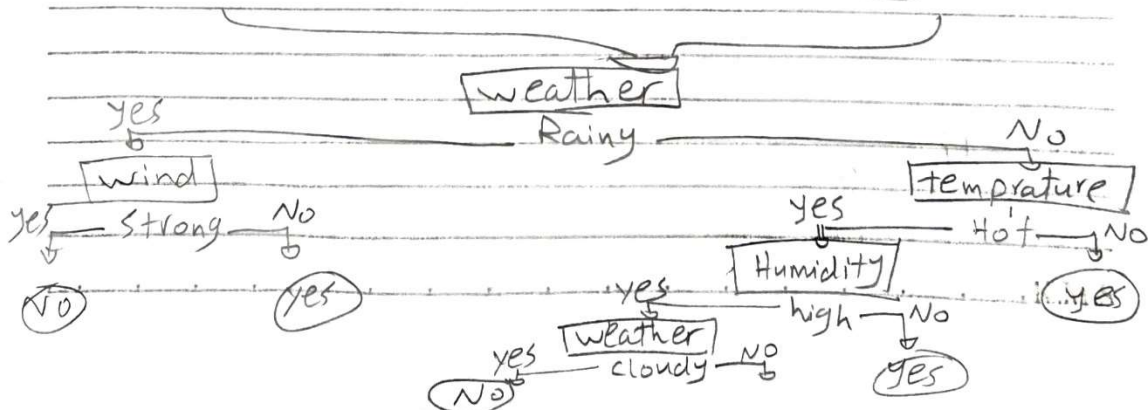 weather
yes Rainy No
wind temprature
yes strong No yes Hot No
Humidity
No yes yes high No yes
weather
yes cloudy No yes
No